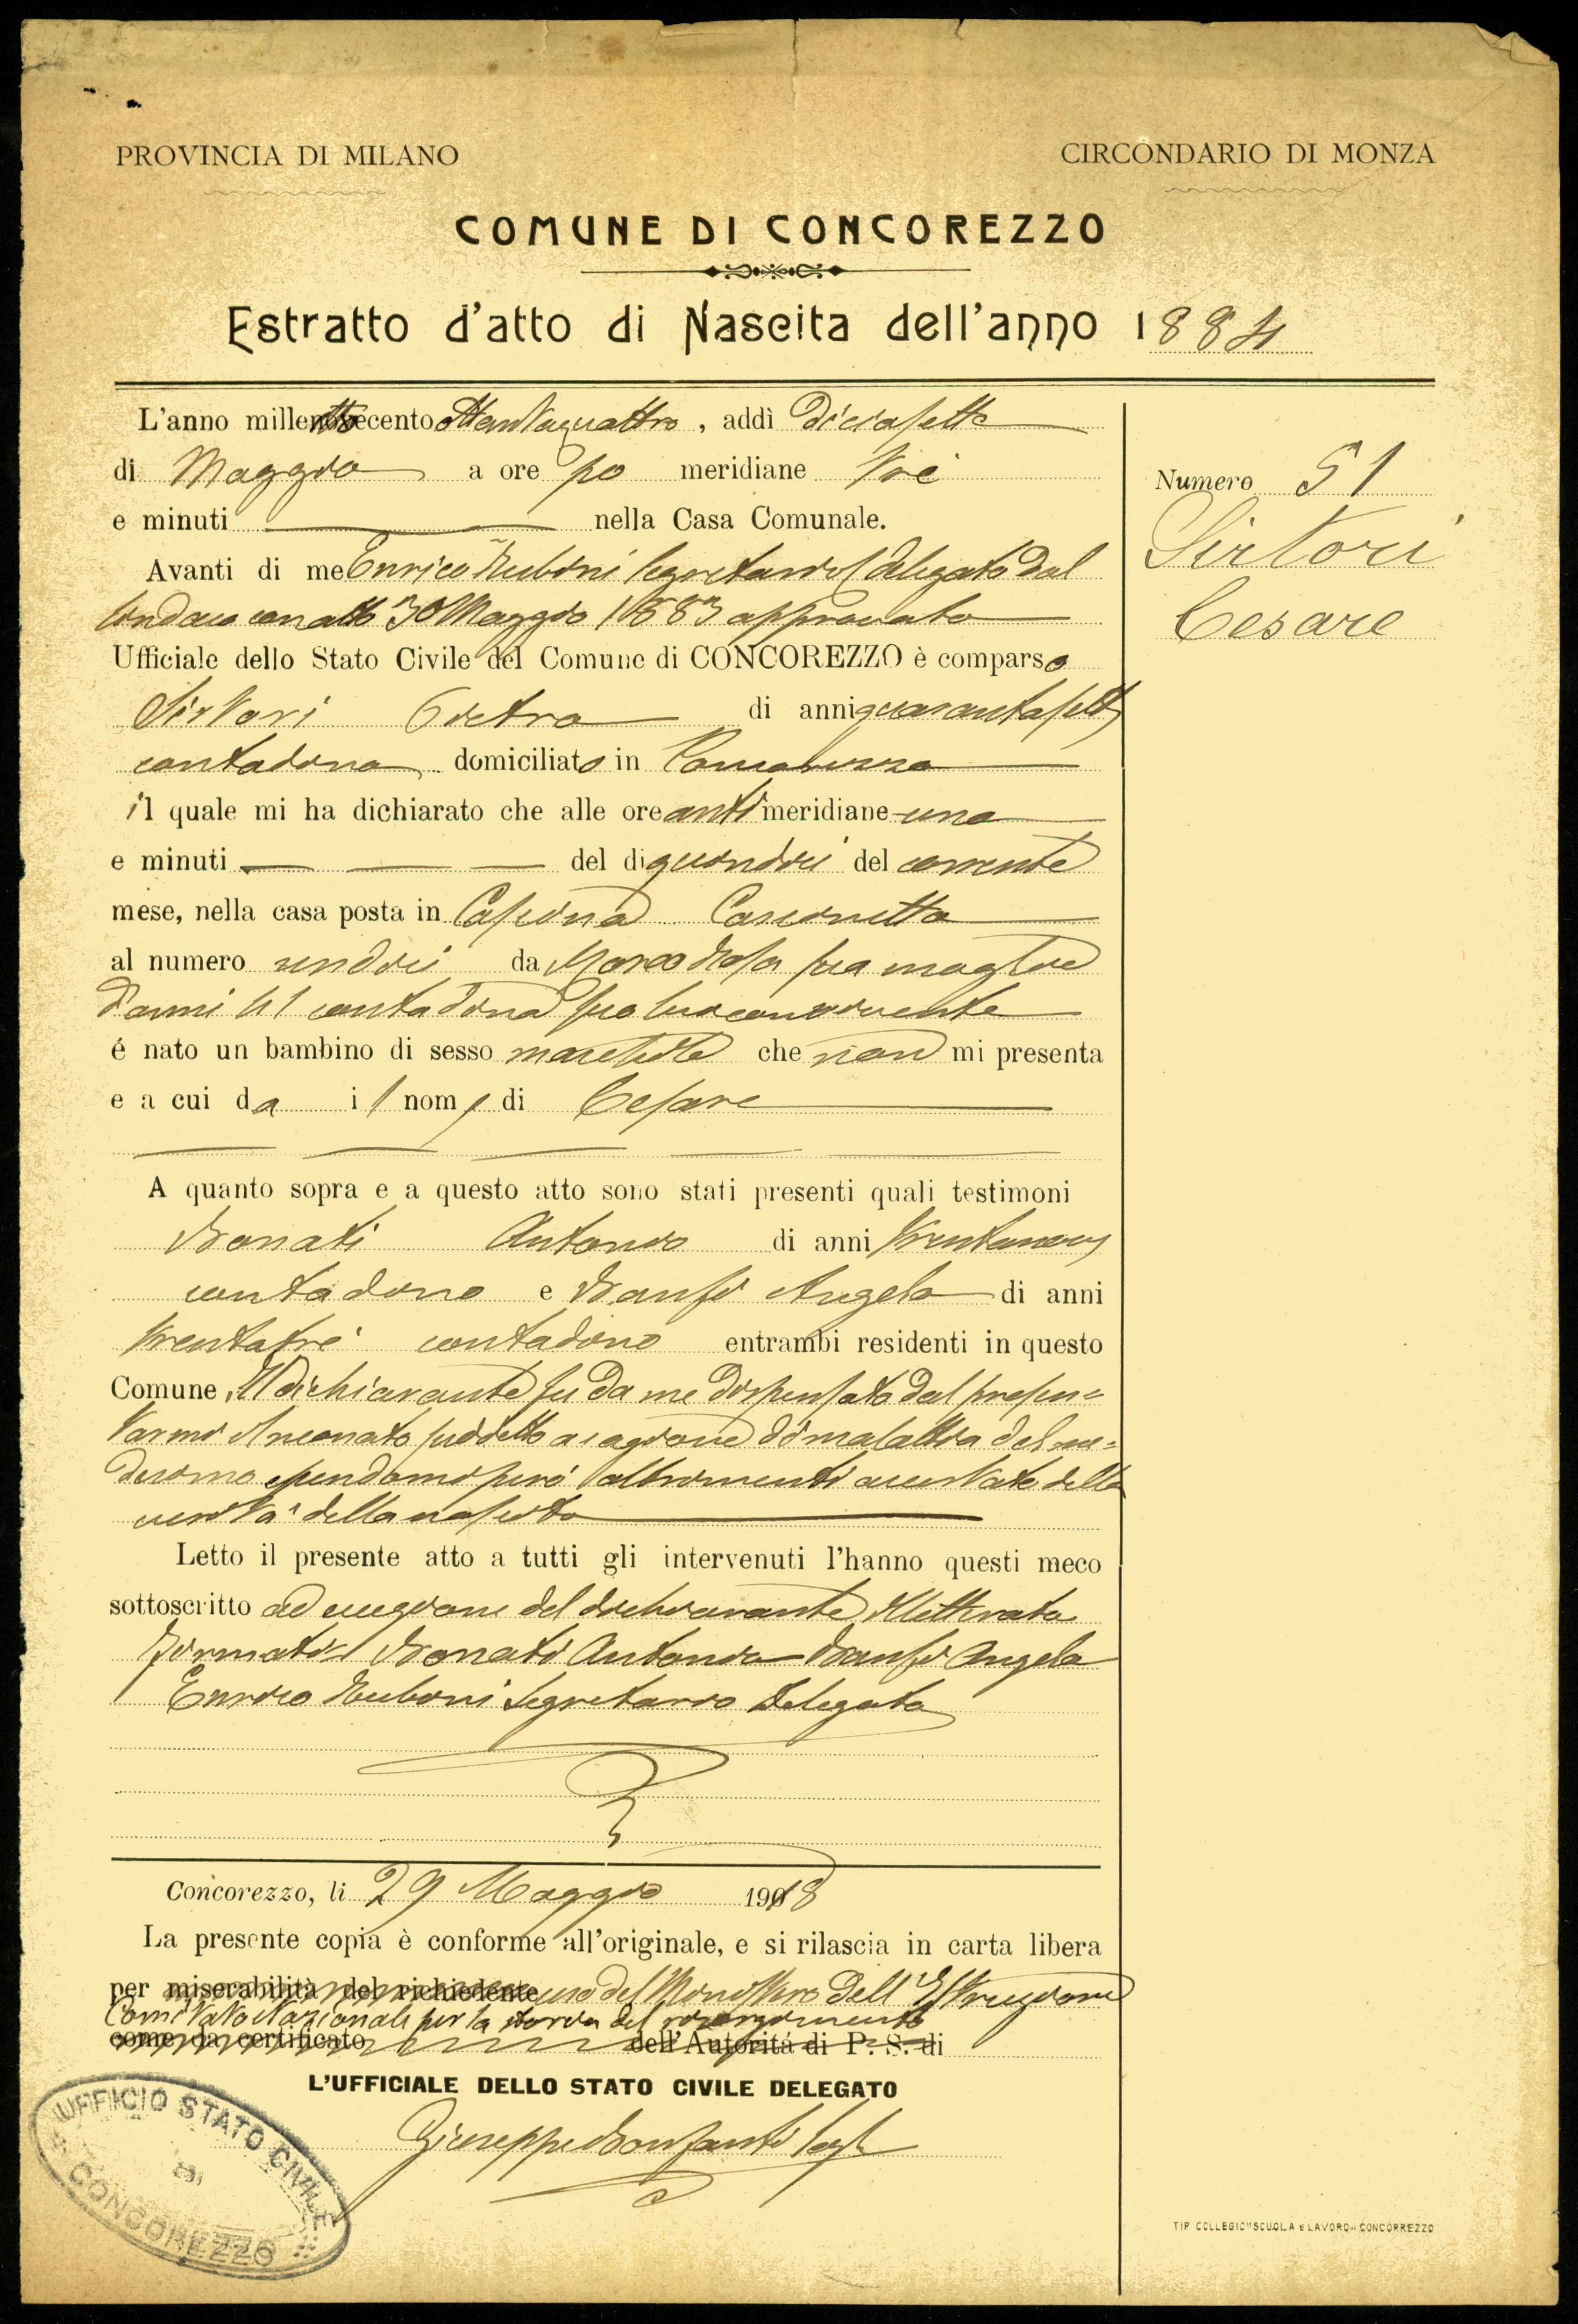 PROVINCIA DI MILANO
CIRCONDARIO DI MONZA
COMUNE DI CONCOREZZO
Estratto d'atto di Nascita dell'anno 1884
L'anno milleottocento ottantaquattro, addì diciasette
di Maggio a ore po meridiane tre
e minuti nella Casa Comunale.
Avanti di me Enrico Ruboni Segretario delegato dal
Sindaco con atto 30 Maggio 1883 approvato
Ufficiale dello Stato Civile del Comune di CONCOREZZO è comparso
Sirtori Pietro di anni quarantasette
contadino domiciliato in Concorezzo
il quale mi ha dichiarato che alle ore anti meridiane una
e minuti del di quindici del corrente
mese, nella casa posta in Cascina Cascinetta
al numero undici da Rosa sua moglie
d'anni 41 contadina seco lui convivente
é nato un bambino di sesso maschile che non mi presenta
e a cui da il nome di Cesare
A quanto sopra e a questo atto sono stati presenti quali testimoni
Bonati Antonio di anni trentanove
contadino e Banfi Angelo di anni
trentatrè contadino entrambi residenti in questo
Comune. Il dichiarante fu da me dispensato dal presen=
tarmi il neonato suddetto a cagione di malattia del me=
desimo essendomi però altrimenti accertato della
verità della nascita
Letto il presente atto a tutti gli intervenuti l'hanno questi meco
sottoscritto ad eccezione del dichiarante illetterato
Firmati Bonati Antonio Banfi Angelo
Enrico Ruboni Segretario Delegato
Concorezzo, li 29 Maggio 1918
La presente copia è conforme all'originale, e si rilascia in carta libera
per miserabilità del richiedente uso del Ministero dell'Istruzione
Comitato Nazionale per la storia del risorgimento
come da certificato dell'Autoritá di P. S. di
L'UFFICIALE DELLO STATO CIVILE DELEGATO
Giuseppe Bonfanti
UFFICIO STATO CIVILE
DI
CONCOREZZO
Numero 51
Sirtori
Cesare
TIP COLLEGIO "SCUOLA E LAVORO" CONCORREZZO